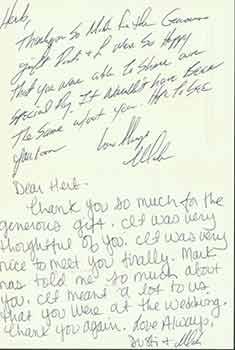 Herb,
Thank you so much for the Generous
gift. & I were so happy
that you were able to share our
special day. It wouldn't have been
the same without you. Hope to see
you soon
Love Always
Dear Herb.
Thank you so much for the
generous gift. It was very
thoughtful of you. It was very
nice to meet you finally. Mark
has told me so much about
you. It means a lot to us
that you were at the wedding.
Thank you again. Love Always,